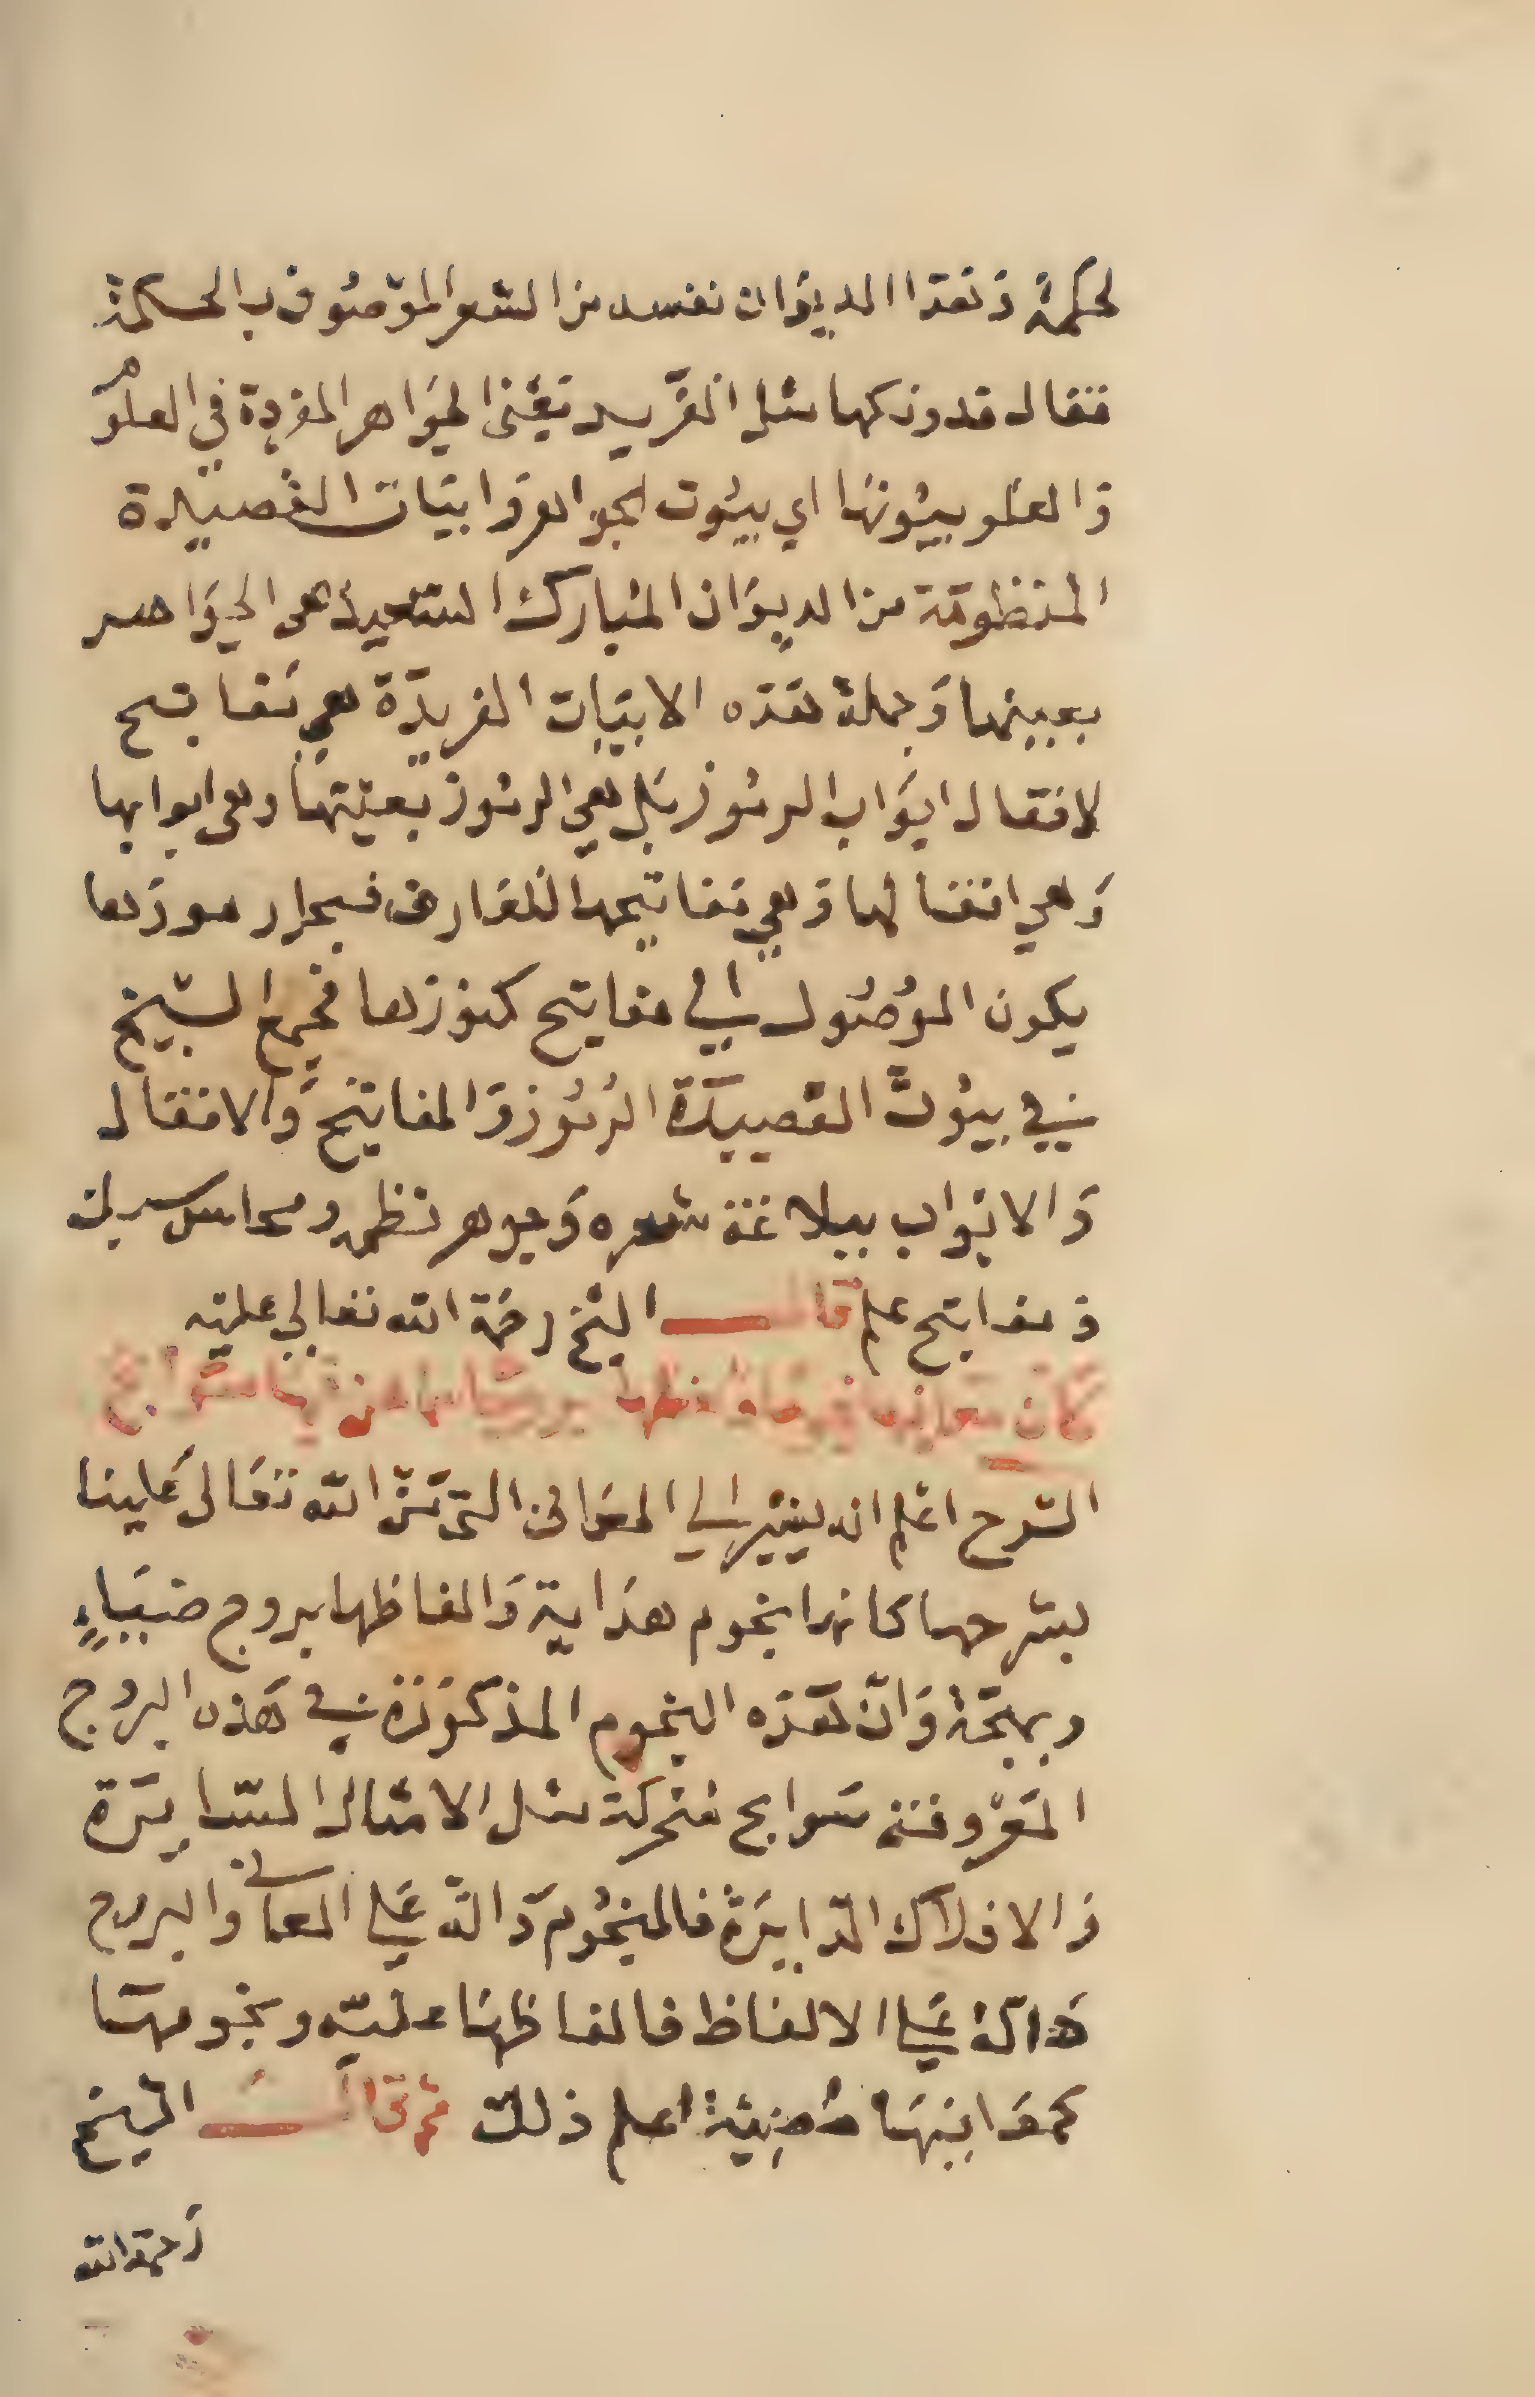 لحكمة وهذا الديوان نفسه من الشعر الموصوف بالحكمة
فقال قد ونكها مثل الفريد يعنى الجواهر المفردة في العلو
والعلو بيوتها اي بيوت الجواهر وابيات القصيدة
المنظومة من الديوان المبارك السعيد هى الجواهر
بعينها وجملة هذه الابيات الفريدة هي مفاتيح
لاقفال ابواب الرموز بل هي الرموز بعينها وهى ابوابها
وهي اقفالها وهي مفاتيحها للعارف فبحل رموزها
يكون الوصول الي مفاتيح كنوزها فجمع الشيخ
في بيوت القصيدة الرموز والمفاتيح والاقفال
والابواب ببلاغة شعره وجوهر نظمه ومحاسن
ومفاتيح علم قال الشيخ رحمة الله تعالي عليه
كان معانيها نجوم بروج سوابح
الشرح اعلم انه يشير الي المعانى التى من الله تعالى علينا
بشرحها كانها نجوم هداية والفاظها بروج ضياء
وبهجة وان هذه النجوم المذكورة في هذه البروج
المعروفة سوابح متحركة مثل الامثال السايرة
والافلاك الدايرة فالنجوم دالة علي المعانى والبروج
دالة علي الالفاظ فالفاظها علية ونجومها
كمعانيها مضيئة اعلم ذلك ثم قال الشيخ
رحمة الله